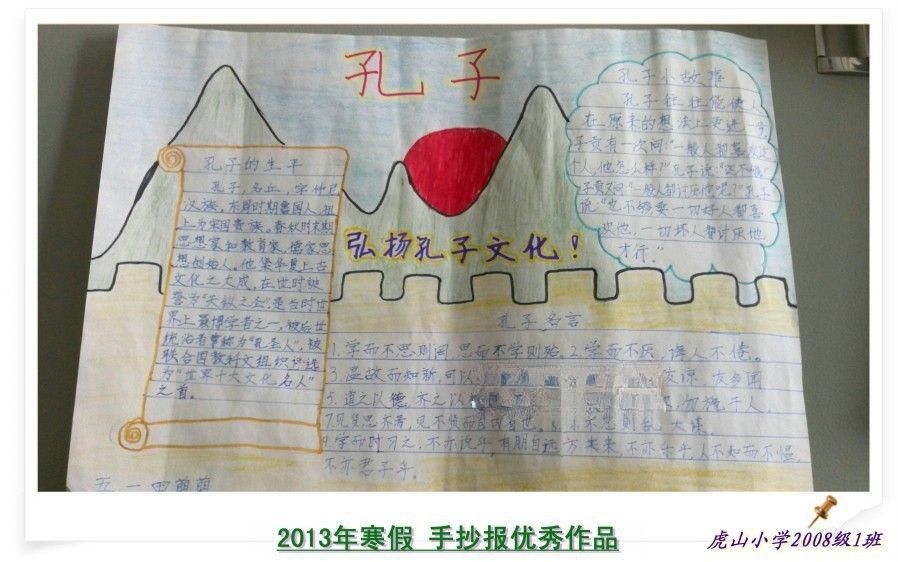 孔子
孔子的生平
孔子,名丘,字仲尼
汉族,东周时期鲁国人,祖
上为宋国贵族。春秋时末期
思想家和教育家,儒家思
想创始人。他集华夏上古
文化之大成,在世时被
誉为“天纵之圣”,是当时世
界上最博学者之一,被后世
统治者尊称为“孔圣人”,被
联合国教科文组织评选
为“世界十大文化名人”
之首。
孔子小故事
孔子往往能使人
在原来的想法上更进一步
子贡有一次问“一般人都喜欢这
个人,他怎么样?”孔子说:“还不够”
子贡又问“一般人都讨厌他呢?”孔子
说:“也不够要一切好人都喜
欢他,一切坏人都讨厌他
才行”
弘扬孔子文化!
孔子名言
1.学而不思则罔,思而不学则殆。2.学而不厌,诲人不倦。
3.温故而知新,可以 友谅 友多闻
5.道之以德,齐之以 加施于人。
7.见贤思齐焉,见不贤而自内省也。 不忍则乱大谋。
9.学而时习之,不亦说乎,有朋自远方来,不亦乐乎,人不知而不愠,
不亦君子乎。
五.一
2013年寒假 手抄报优秀作品
虎山小学2008级1班